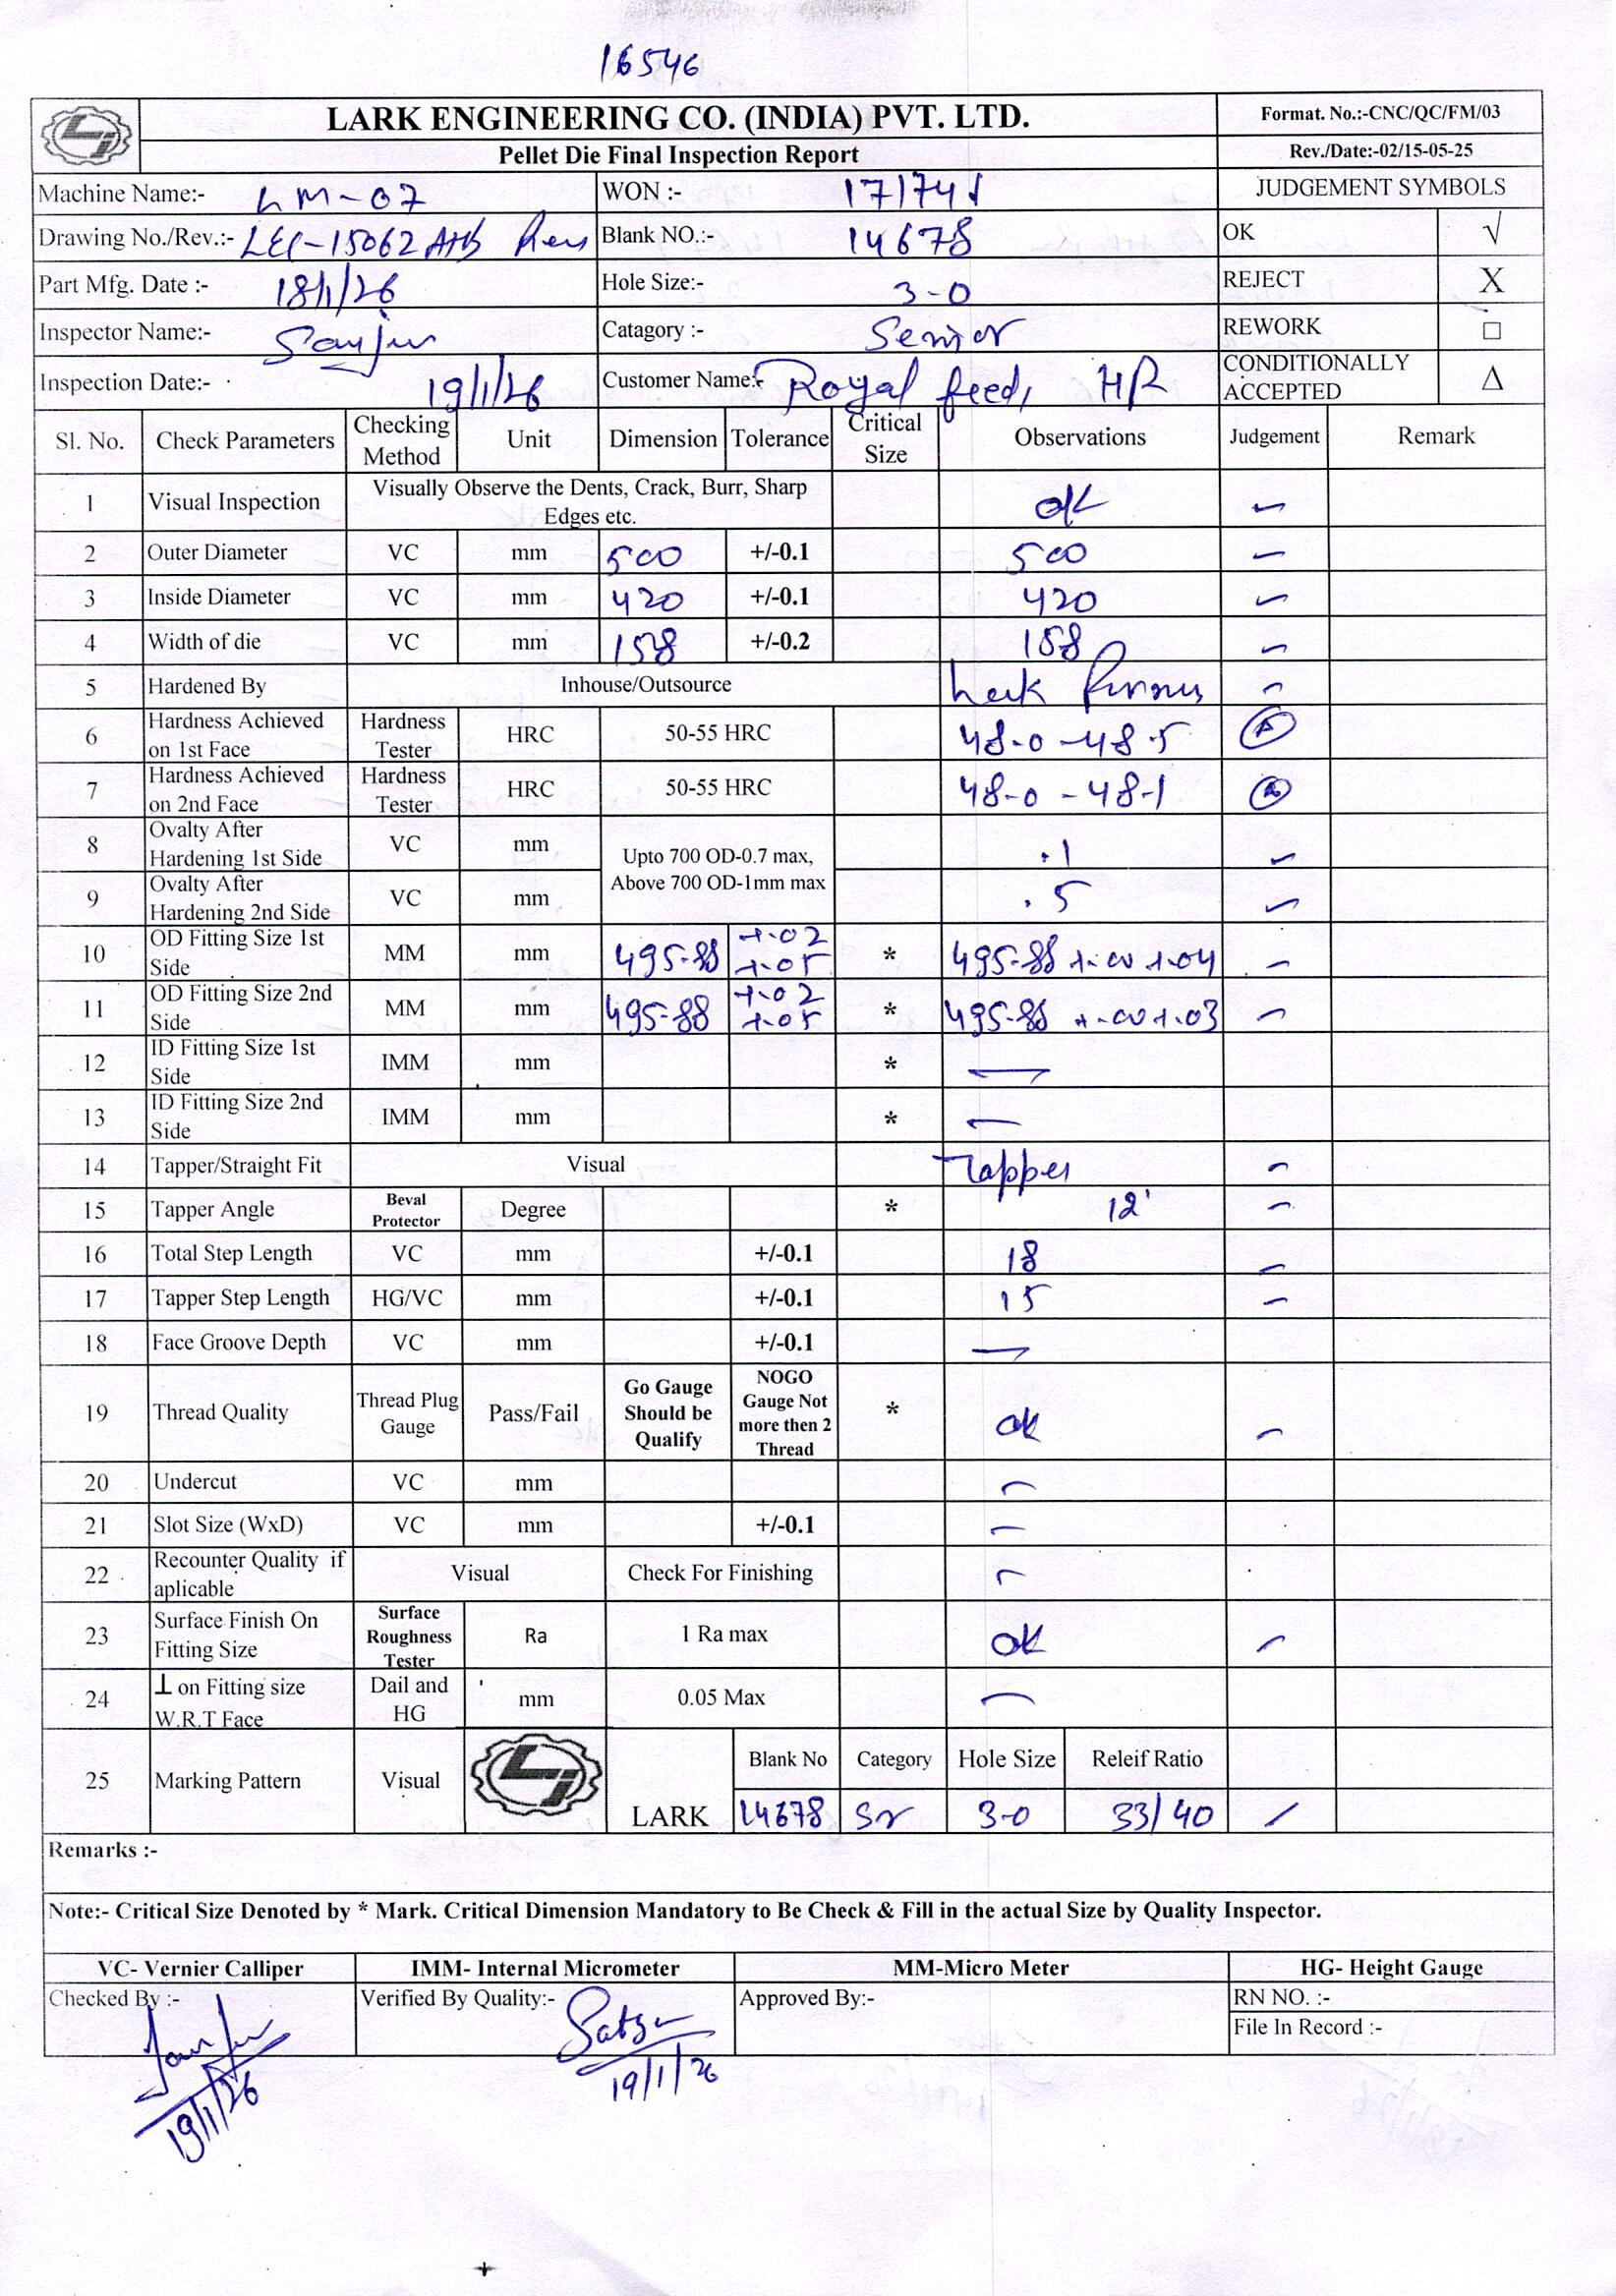 16546
LARK ENGINEERING CO. (INDIA) PVT. LTD.
Format. No.:-CNC/QC/FM/03
Pellet Die Final Inspection Report
Rev./Date:-02/15-05-25
Machine Name:- LM-07 WON :- 17174 JUDGEMENT SYMBOLS
Drawing No./Rev.:- LEC-15062 Blank NO.:- 14678 OK √
Part Mfg. Date :- 18/1/26 Hole Size:- 3-0 REJECT X
Inspector Name:- Catagory :- Senior REWORK □
Inspection Date:- 19/1/26 Customer Name:- Royal feed, HR CONDITIONALLY ACCEPTED Δ
Sl. No. Check Parameters Checking Method Unit Dimension Tolerance Critical Size Observations Judgement Remark
1 Visual Inspection Visually Observe the Dents, Crack, Burr, Sharp Edges etc. ok
2 Outer Diameter VC mm 500 +/-0.1 500
3 Inside Diameter VC mm 420 +/-0.1 420
4 Width of die VC mm 158 +/-0.2 158
5 Hardened By Inhouse/Outsource
6 Hardness Achieved on 1st Face Hardness Tester HRC 50-55 HRC 48-0 - 48.5
7 Hardness Achieved on 2nd Face Hardness Tester HRC 50-55 HRC 48-0 - 48-1
8 Ovalty After Hardening 1st Side VC mm Upto 700 OD-0.7 max, Above 700 OD-1mm max .1
9 Ovalty After Hardening 2nd Side VC mm .5
10 OD Fitting Size 1st Side MM mm 495-88 +.02 +.05 * 495-88 +.00 +.04
11 OD Fitting Size 2nd Side MM mm 495-88 +.02 +.05 * 495-88 +.00 +.03
12 ID Fitting Size 1st Side IMM mm * —
13 ID Fitting Size 2nd Side IMM mm * —
14 Tapper/Straight Fit Visual Tapper
15 Tapper Angle Beval Protector Degree * 12'
16 Total Step Length VC mm +/-0.1 18
17 Tapper Step Length HG/VC mm +/-0.1 15
18 Face Groove Depth VC mm +/-0.1 —
19 Thread Quality Thread Plug Gauge Pass/Fail Go Gauge Should be Qualify NOGO Gauge Not more then 2 Thread * ok
20 Undercut VC mm —
21 Slot Size (WxD) VC mm +/-0.1 —
22 Recounter Quality if aplicable Visual Check For Finishing —
23 Surface Finish On Fitting Size Surface Roughness Tester Ra 1 Ra max ok
24 ⊥ on Fitting size W.R.T Face Dail and HG mm 0.05 Max —
25 Marking Pattern Visual LARK Blank No Category Hole Size Releif Ratio
14678 Sr 3-0 33/40
Remarks :-
Note:- Critical Size Denoted by * Mark. Critical Dimension Mandatory to Be Check & Fill in the actual Size by Quality Inspector.
VC- Vernier Calliper IMM- Internal Micrometer MM-Micro Meter HG- Height Gauge
Checked By :- Verified By Quality:- Approved By:- RN NO. :-
File In Record :-
19/1/26 19/1/26